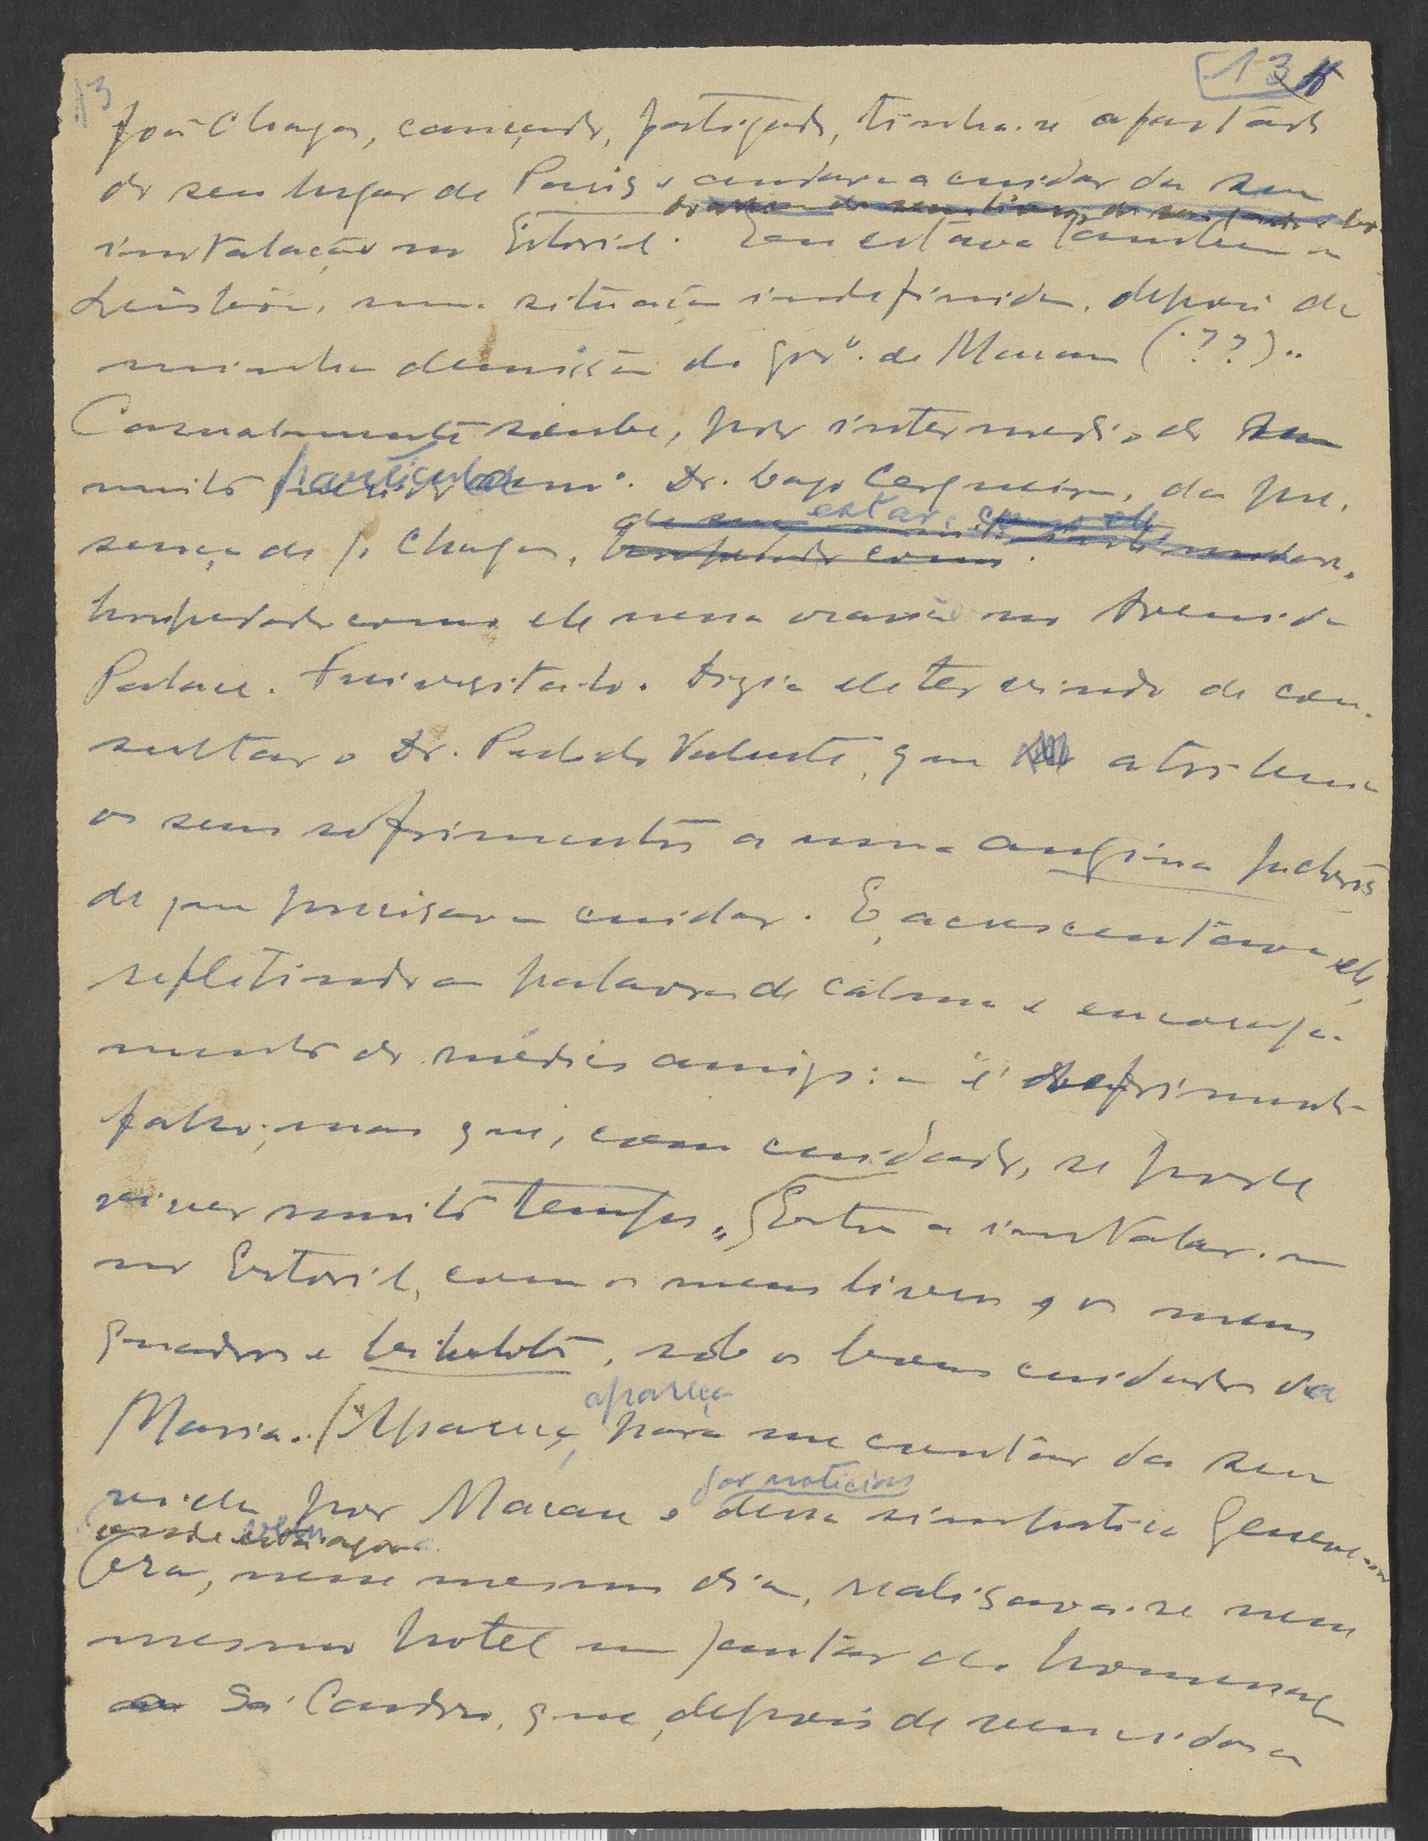 13
13
João Chagas, cançado, fatigado, tinha-se afastado
do seu lugar de Paris e andava a cuidar da sua
instalação no Estoril. Eu estava tambem em
Lisboa, numa situação indefinida, depois da
minha demissão do gov.º de Macau (??)..
Casualmente soube, por intermedio do seu
muito particular am.º Dr. Cerqueira, da pre-
estar
sença de J. Chagas,
hospedado como ele nessa ocasião no Avenida
Palace. Fui visita-lo. Dizia ele ter vindo de con-
sultar o Dr. Pulido Valente, que atribuia
os seus sofrimentos a uma angina pectoris
de que precisava cuidar. E, acrescentava ele,
refletindo as palavras de calma e encoraja-
mento do médico amigo: - é sofrimento
falso, mas que, com cuidado, se pode
viver muito tempo. Estou a instalar-me
no Estoril, com os meus livros e os meus
quadros e bibelots, sob os bons cuidados da
apareça
Maria. Apareça, para me contar da sua
dar noticias
vida por Macau e dessa simpatica
onde está agora
Ora, nesse mesmo dia, realisava-se nesse
mesmo hotel um jantar de homenagem
a Sá Cardoso, que, depois de